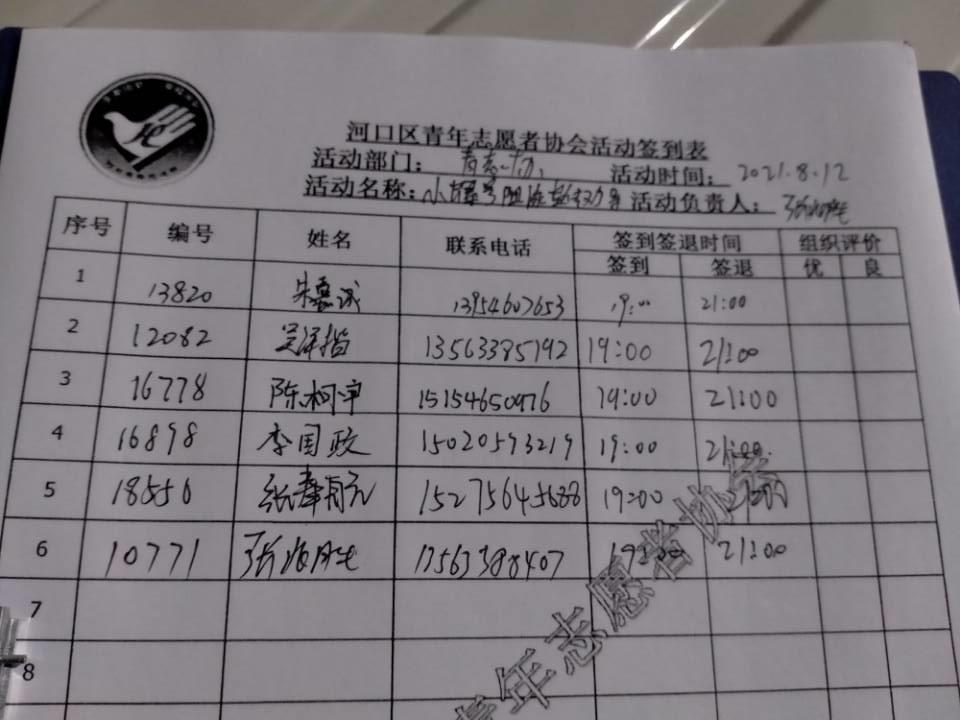 河口区青年志愿者协会活动签到表
活动部门： 青志协 活动时间： 2021.8.12
活动名称： 小 活动负责人：
序号 编号 姓名 联系电话 签到签退时间 组织评价
签到 签退 优 良
1 13820 朱 诚 13954607653 19:00 21:00
2 12082 13563385192 19:00 21:00
3 16778 陈柯宇 15154650976 19:00 21:00
4 16898 李国政 15020593219 19:00 21:00
5 18556 张 15275645688 19:00
6 10771 张 胜 13563388407 19:00 21:00
7
8
青年志愿者协会